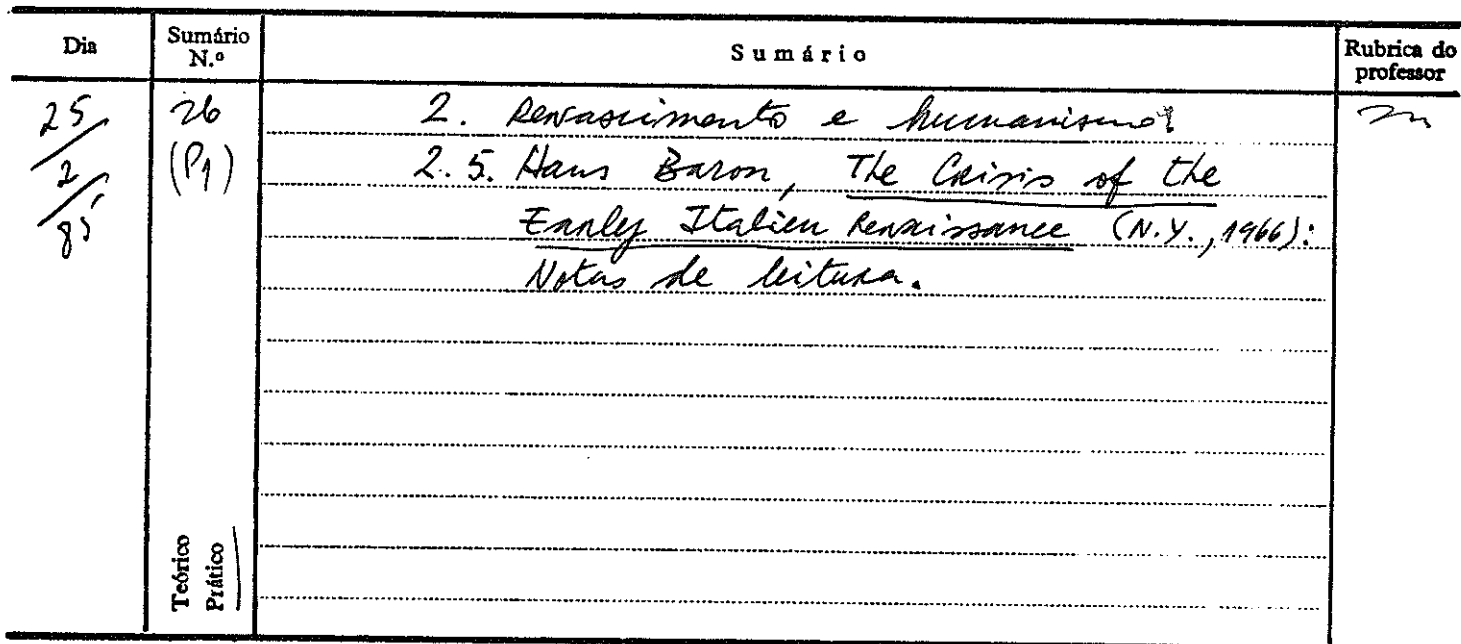 Dia
Sumário N.º
Sumário
Rubrica do professor
25/2/85
26
(P1)
2. Renascimento e humanismo:
2.5. Hans Baron, The Crisis of the
Early Italian Renaissance (N.Y., 1966):
Notas de leitura.
Teórico
Prático